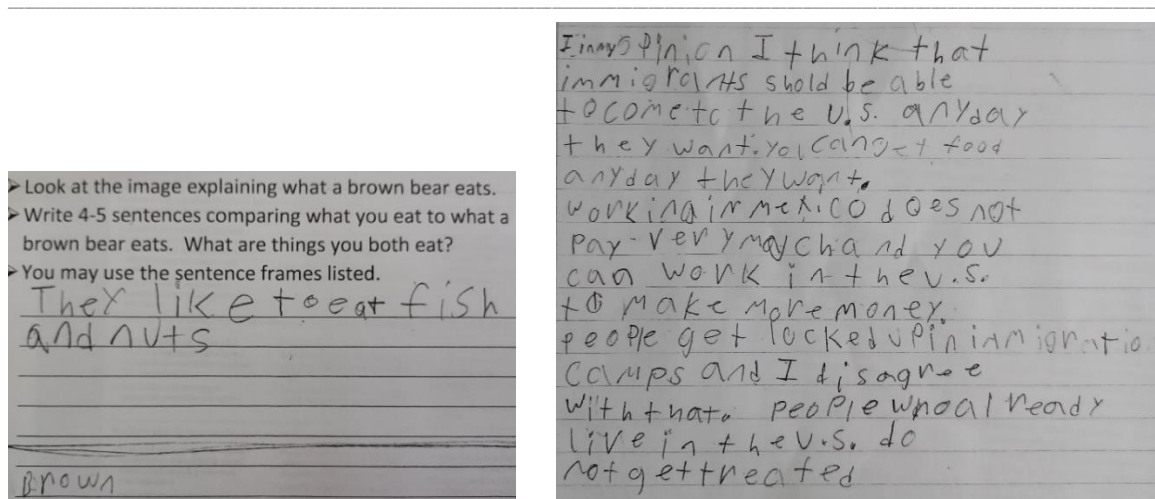 ➢ Look at the image explaining what a brown bear eats.
➢ Write 4-5 sentences comparing what you eat to what a
brown bear eats. What are things you both eat?
➢ You may use the sentence frames listed.
They like to eat fish
and nuts
Brown
I in my opinion I think that
immigrants shold be able
to come to the U.S. any day
they want. you can get food
any day they want.
working in mexico does not
pay very much and you
can work in the U.S.
to make more money.
people get locked up in inmigratio
camps and I disagree
with that. people who already
live in the U.S. do
not get treated